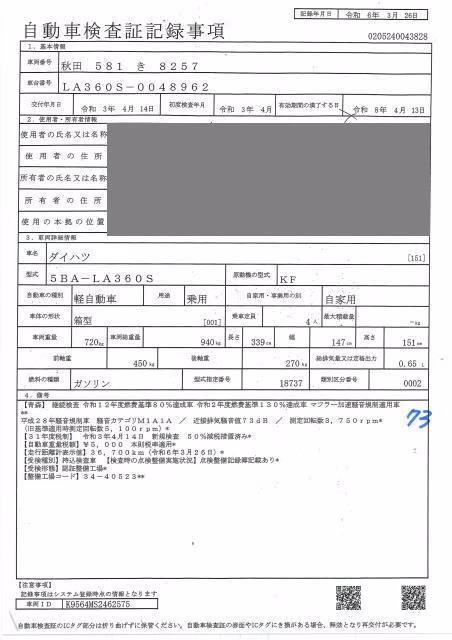 記録年月日 令和 6年 3月 26日
自動車検査証記録事項
0205240043828
1. 基本情報
車両番号 秋田 581 き 8257
車台番号 LA360S-0048962
交付年月日 令和 3年 4月 14日 初度検査年月 令和 3年 4月 有効期間の満了する日 令和 8年 4月 13日
2. 使用者・所有者情報
使用者の氏名又は名称
使用者の住所
所有者の氏名又は名称
所有者の住所
使用の本拠の位置
3. 車両詳細情報
車名 ダイハツ [151]
型式 5BA-LA360S 原動機の型式 KF
自動車の種別 軽自動車 用途 乗用 自家用・事業用の別 自家用
車体の形状 箱型 [001] 乗車定員 4人 最大積載量 -kg
車両重量 720kg 車両総重量 940kg 長さ 339cm 幅 147cm 高さ 151cm
前軸重 450kg 後軸重 270kg 総排気量又は定格出力 0.65 L
燃料の種類 ガソリン 型式指定番号 18737 類別区分番号 0002
4. 備考
【青森】 継続検査 令和12年度燃費基準80%達成車 令和2年度燃費基準130%達成車 マフラー加速騒音規制適用車
**
平成28年騒音規制車 騒音カテゴリM1A1A / 近接排気騒音値73dB / 測定回転数3,750rpm*
(旧基準適用時測定回転数5,100rpm)*
【31年度税制】 令和3年4月14日 新規検査 50%減税措置済み*
【自動車重量税額】 ¥5,000 本則税率適用*
【走行距離計表示値】 36,700km(令和6年3月26日)*
【受検種別】持込検査車 【検査時の点検整備実施状況】点検整備記録簿記載あり*
【受検形態】認証整備工場*
【整備工場コード】34-40523**
73
【注意事項】
記録事項はシステム登録時点の情報となります
車両ID K9564MS2462575
自動車検査証のICタグ部分は折り曲げずに保管ください。自動車検査証の券面やICタグにき損がある場合、無効となり再交付が必要です。